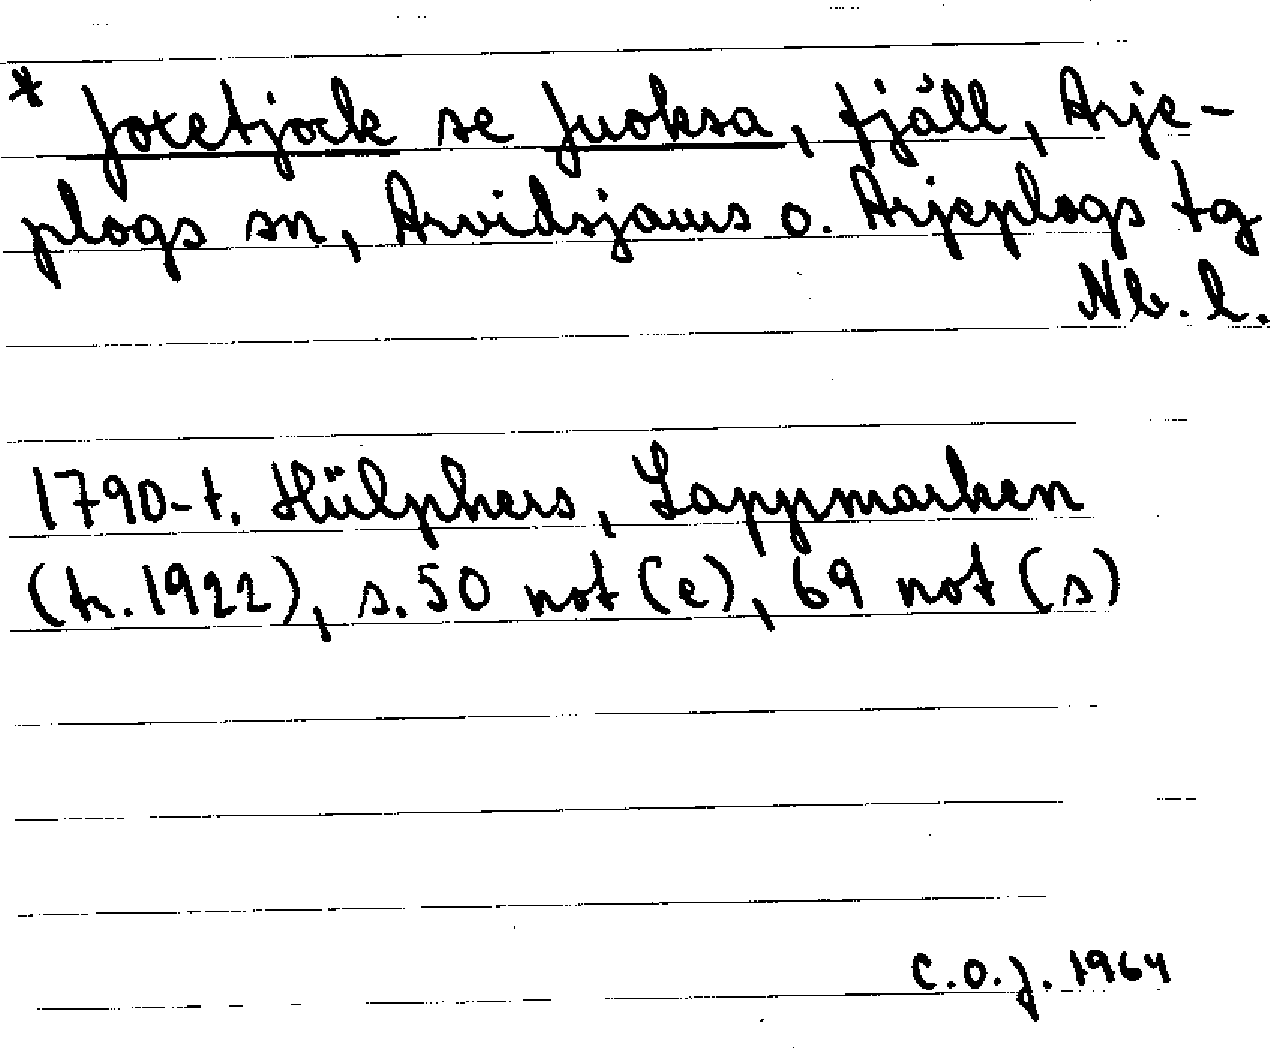 * Joxetjock se Juoksa, fjäll, Arje-
plogs sn, Arvidsjaurs o. Arjeplogs tg
Nb. l.
1790-t. Hülphers, Lappmarken
(tr. 1922), s. 50 not (e), 69 not (s)
C.O.J. 1964